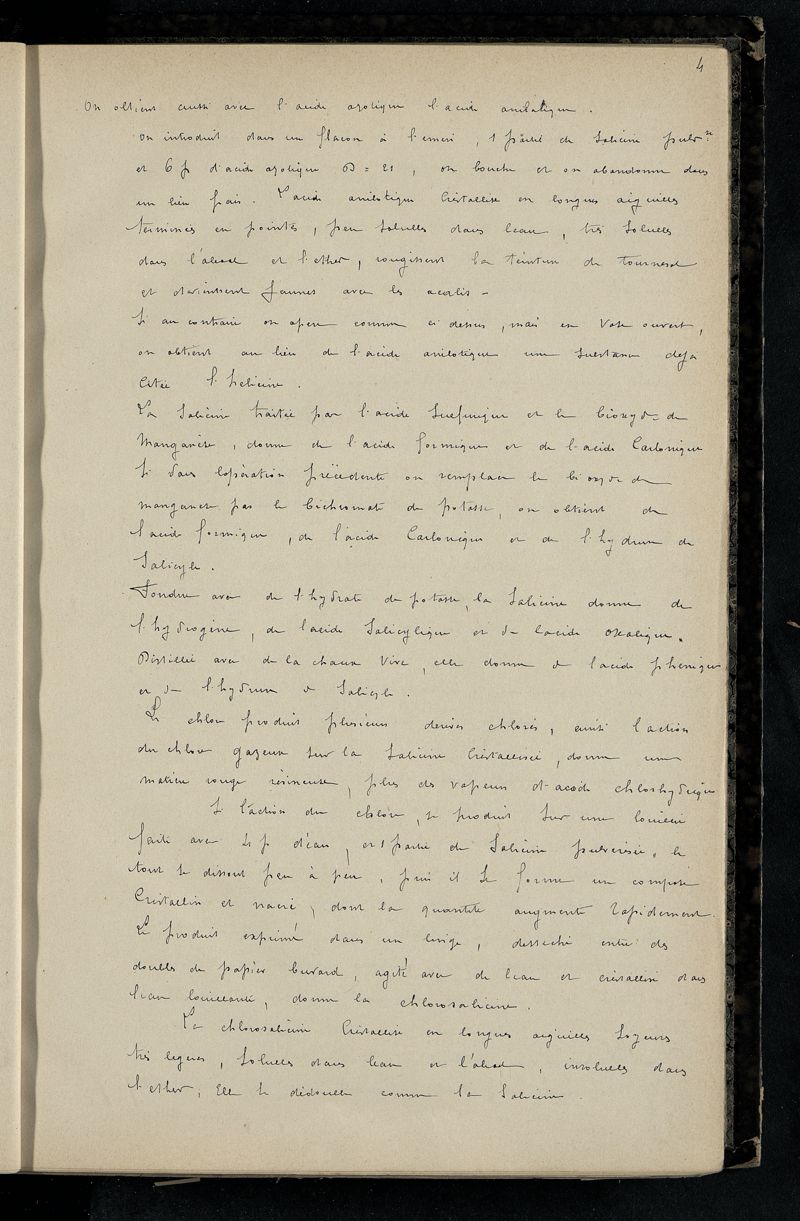 4
On obtient aussi avec l'acide azotique l'acide anilotique.
on introduit dans un flacon à l'emeri, 1 partie de Salicine pulvsée
et 6 p d'acide azotique D = 21, on bouche et on abandonne dans
un lieu frais. L'acide anilotique Cristallise en longues aiguilles
terminées en pointes, peu solubles dans l'eau, très solubles
dans l'alcool et l'ether, rougissent la teinture de tournesol
et deviennent jaunes avec les acalis -
Si au contraire on opere comme ci dessus, mais en Vase ouvert,
on obtient au lieu de l'acide anilotique une substance deja
Citée l'helicine.
La Salicine traitée par l'acide Sulfurique et le bioxyde de
Manganèse, donne de l'acide formique et de l'acide Carbonique
Si dans l'opération précédente on remplace le bioxyde de
manganese par le bichromate de potasse, on obtient de
l'acide formique, de l'acide Carbonique et de l'hydrure de
Salicyle.
Fondue avec de l'hydrate de potasse, la Salicine donne de
l'hydrogène, de l'acide Salicylique et de l'acide oxalique.
Distillée avec de la chaux Vive, elle donne de l'acide phenique
et de l'hydrure de Salicyle.
Le chlore produit plusieurs derivés chlorés, ainsi l'action
du chlore gazeux sur la Salicine Cristallisée, donne une
matiere rouge résineuse, plus des vapeurs d'acide chlorhydrique
Si l'action du chlore, se produit sur une bouillie
faite avec 4 p d'eau, et 1 partie de Salicine pulverisée, le
tout se dissout peu à peu, puis il se forme un composé
Cristallin et nacré, dont la quantité augmente rapidement.
Le produit exprimé dans un linge, desseché entre des
doubles de papier buvard, agité avec de l'eau et cristallisé dans
l'eau bouillante, donne la chlorosalicine.
La chlorosalicine Cristallise en longues aiguilles soyeuses
très legeres, solubles dans l'eau et l'alcool, insolubles dans
l'ether, Elle se dédouble comme la Salicine.